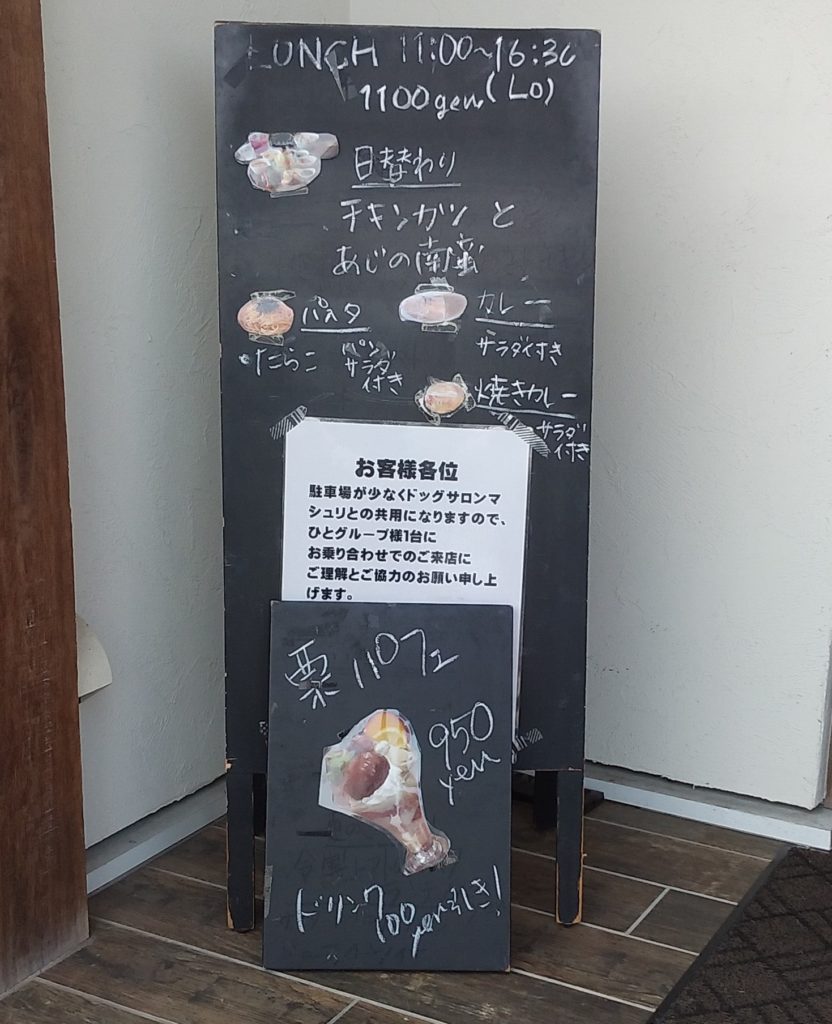 LUNCH 11:00~16:30
1100yen (LO)
日替わり
チキンカツ と
あじの南蛮
パスタ
・たらこ
パン
サラダ
付き
カレー
サラダ付き
焼きカレー
サラダ
付き
お客様各位
駐車場が少なくドッグサロンマ
シュリとの共用になりますので、
ひとグループ様1台に
お乗り合わせでのご来店に
ご理解とご協力のお願い申し上
げます。
栗パフェ
950
yen
ドリンク100yen引き!